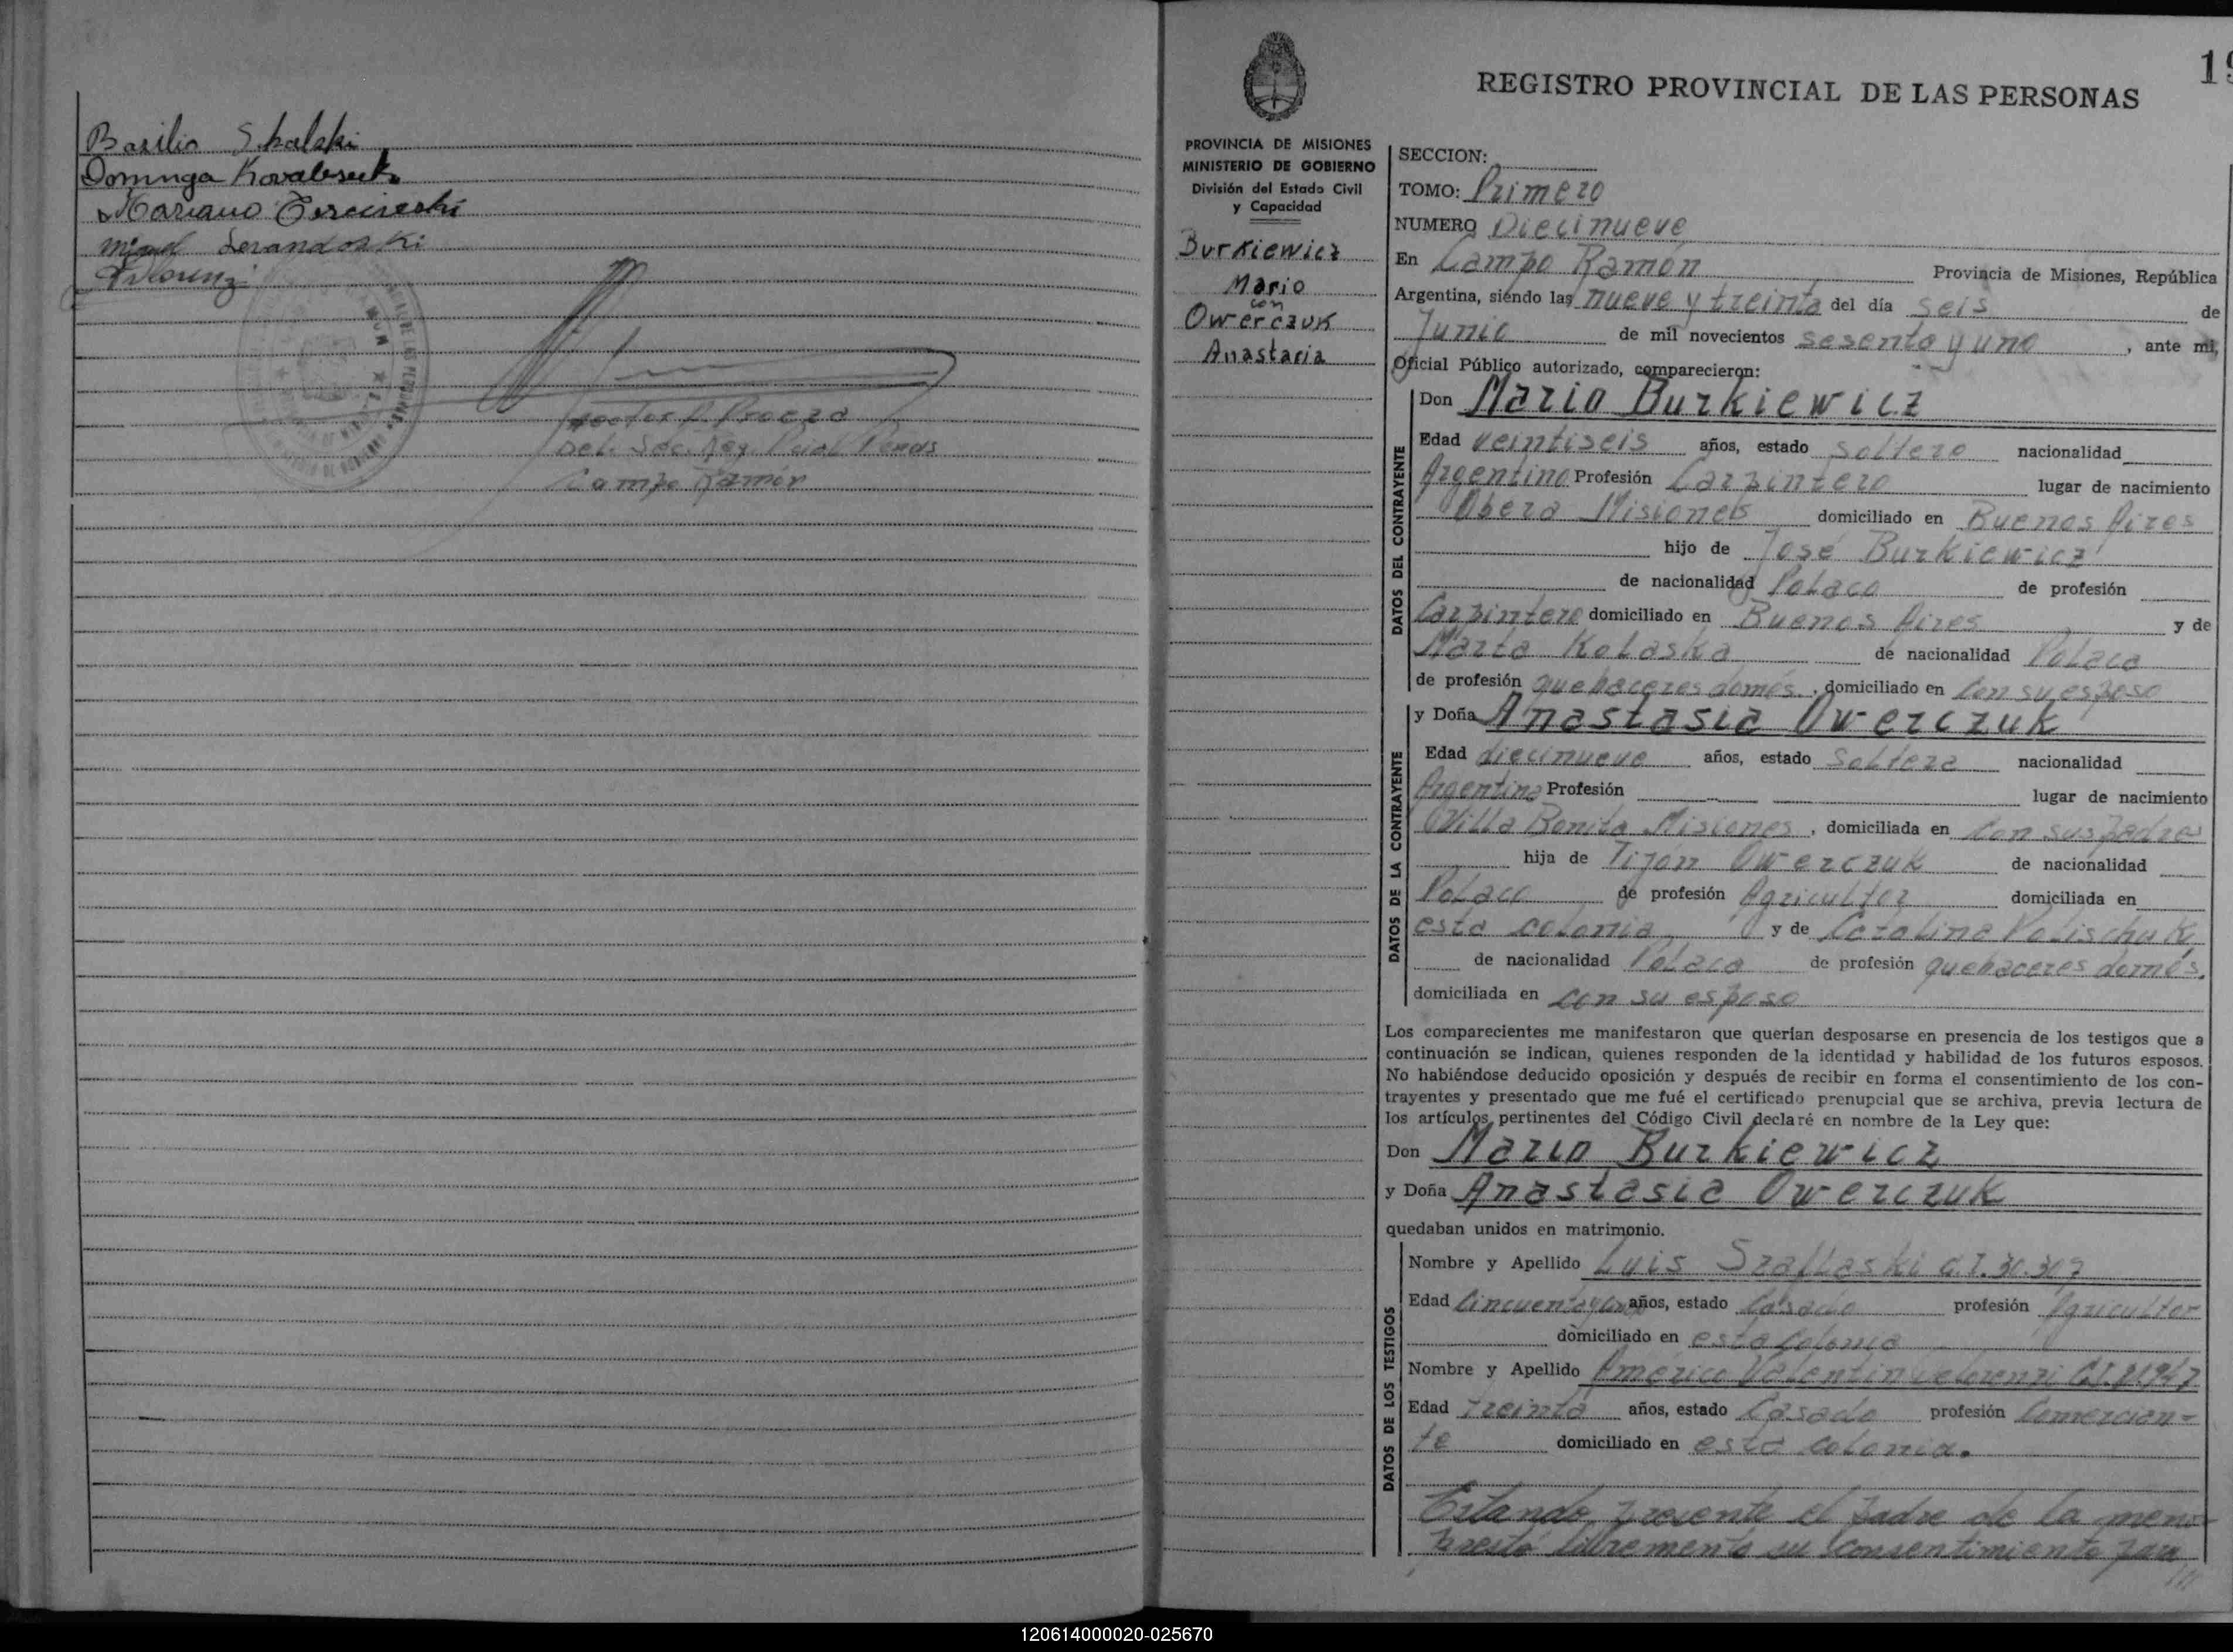 Basilio Skalski
Dominga Kovaleseck
Mariano
Miguel
Hector A. Proeza
Del. Sec. Reg. Pcial Penas
Campo Ramón
19
REGISTRO PROVINCIAL DE LAS PERSONAS
PROVINCIA DE MISIONES
MINISTERIO DE GOBIERNO
División del Estado Civil
y Capacidad
Burkiewicz
Mario
con
Owerczuk
Anastacia
SECCION:
TOMO: Primero
NUMERO Diecinueve
En Campo Ramón Provincia de Misiones, República
Argentina, siendo las nueve y treinta del día seis de
Junio de mil novecientos sesenta y uno, ante mi,
Oficial Público autorizado, comparecieron:
DATOS DEL CONTRAYENTE
Don Mario Burkiewicz
Edad veintiseis años, estado soltero nacionalidad
Argentino Profesión Carpintero lugar de nacimiento
Obera Misiones domiciliado en Buenos Aires
hijo de José Burkiewicz
de nacionalidad Polaco de profesión
Carpintero domiciliado en Buenos Aires y de
Marta Kolaska de nacionalidad Polaca
de profesión quehaceres domés., domiciliado en con su esposo
DATOS DE LA CONTRAYENTE
y Doña Anastasia Owerczuk
Edad diecinueve años, estado Soltera nacionalidad
Argentina Profesión lugar de nacimiento
Villa Bonita Misiones, domiciliada en con sus padres
hija de Tijón Owerczuk de nacionalidad
Polaco de profesión Agricultor domiciliada en
esta colonia y de Catalina Polischuk,
de nacionalidad Polaca de profesión quehaceres domés.
domiciliada en con su esposo
Los comparecientes me manifestaron que querían desposarse en presencia de los testigos que a
continuación se indican, quienes responden de la identidad y habilidad de los futuros esposos.
No habiéndose deducido oposición y después de recibir en forma el consentimiento de los con-
trayentes y presentado que me fué el certificado prenupcial que se archiva, previa lectura de
los artículos pertinentes del Código Civil declaré en nombre de la Ley que:
Don Mario Burkiewicz
y Doña Anastasia Owerczuk
quedaban unidos en matrimonio.
DATOS DE LOS TESTIGOS
Nombre y Apellido Luis Szaflaski C.I. 30.307
Edad Cincuenta y años, estado Casado profesión Agricultor
domiciliado en esta colonia
Nombre y Apellido Américo Valentin Delorenzi C.I.
Edad Treinta años, estado Casado profesión Comercian=
te domiciliado en esta colonia.
Estando presente el padre de la menor
prestó libremente su consentimiento para
120614000020-025670